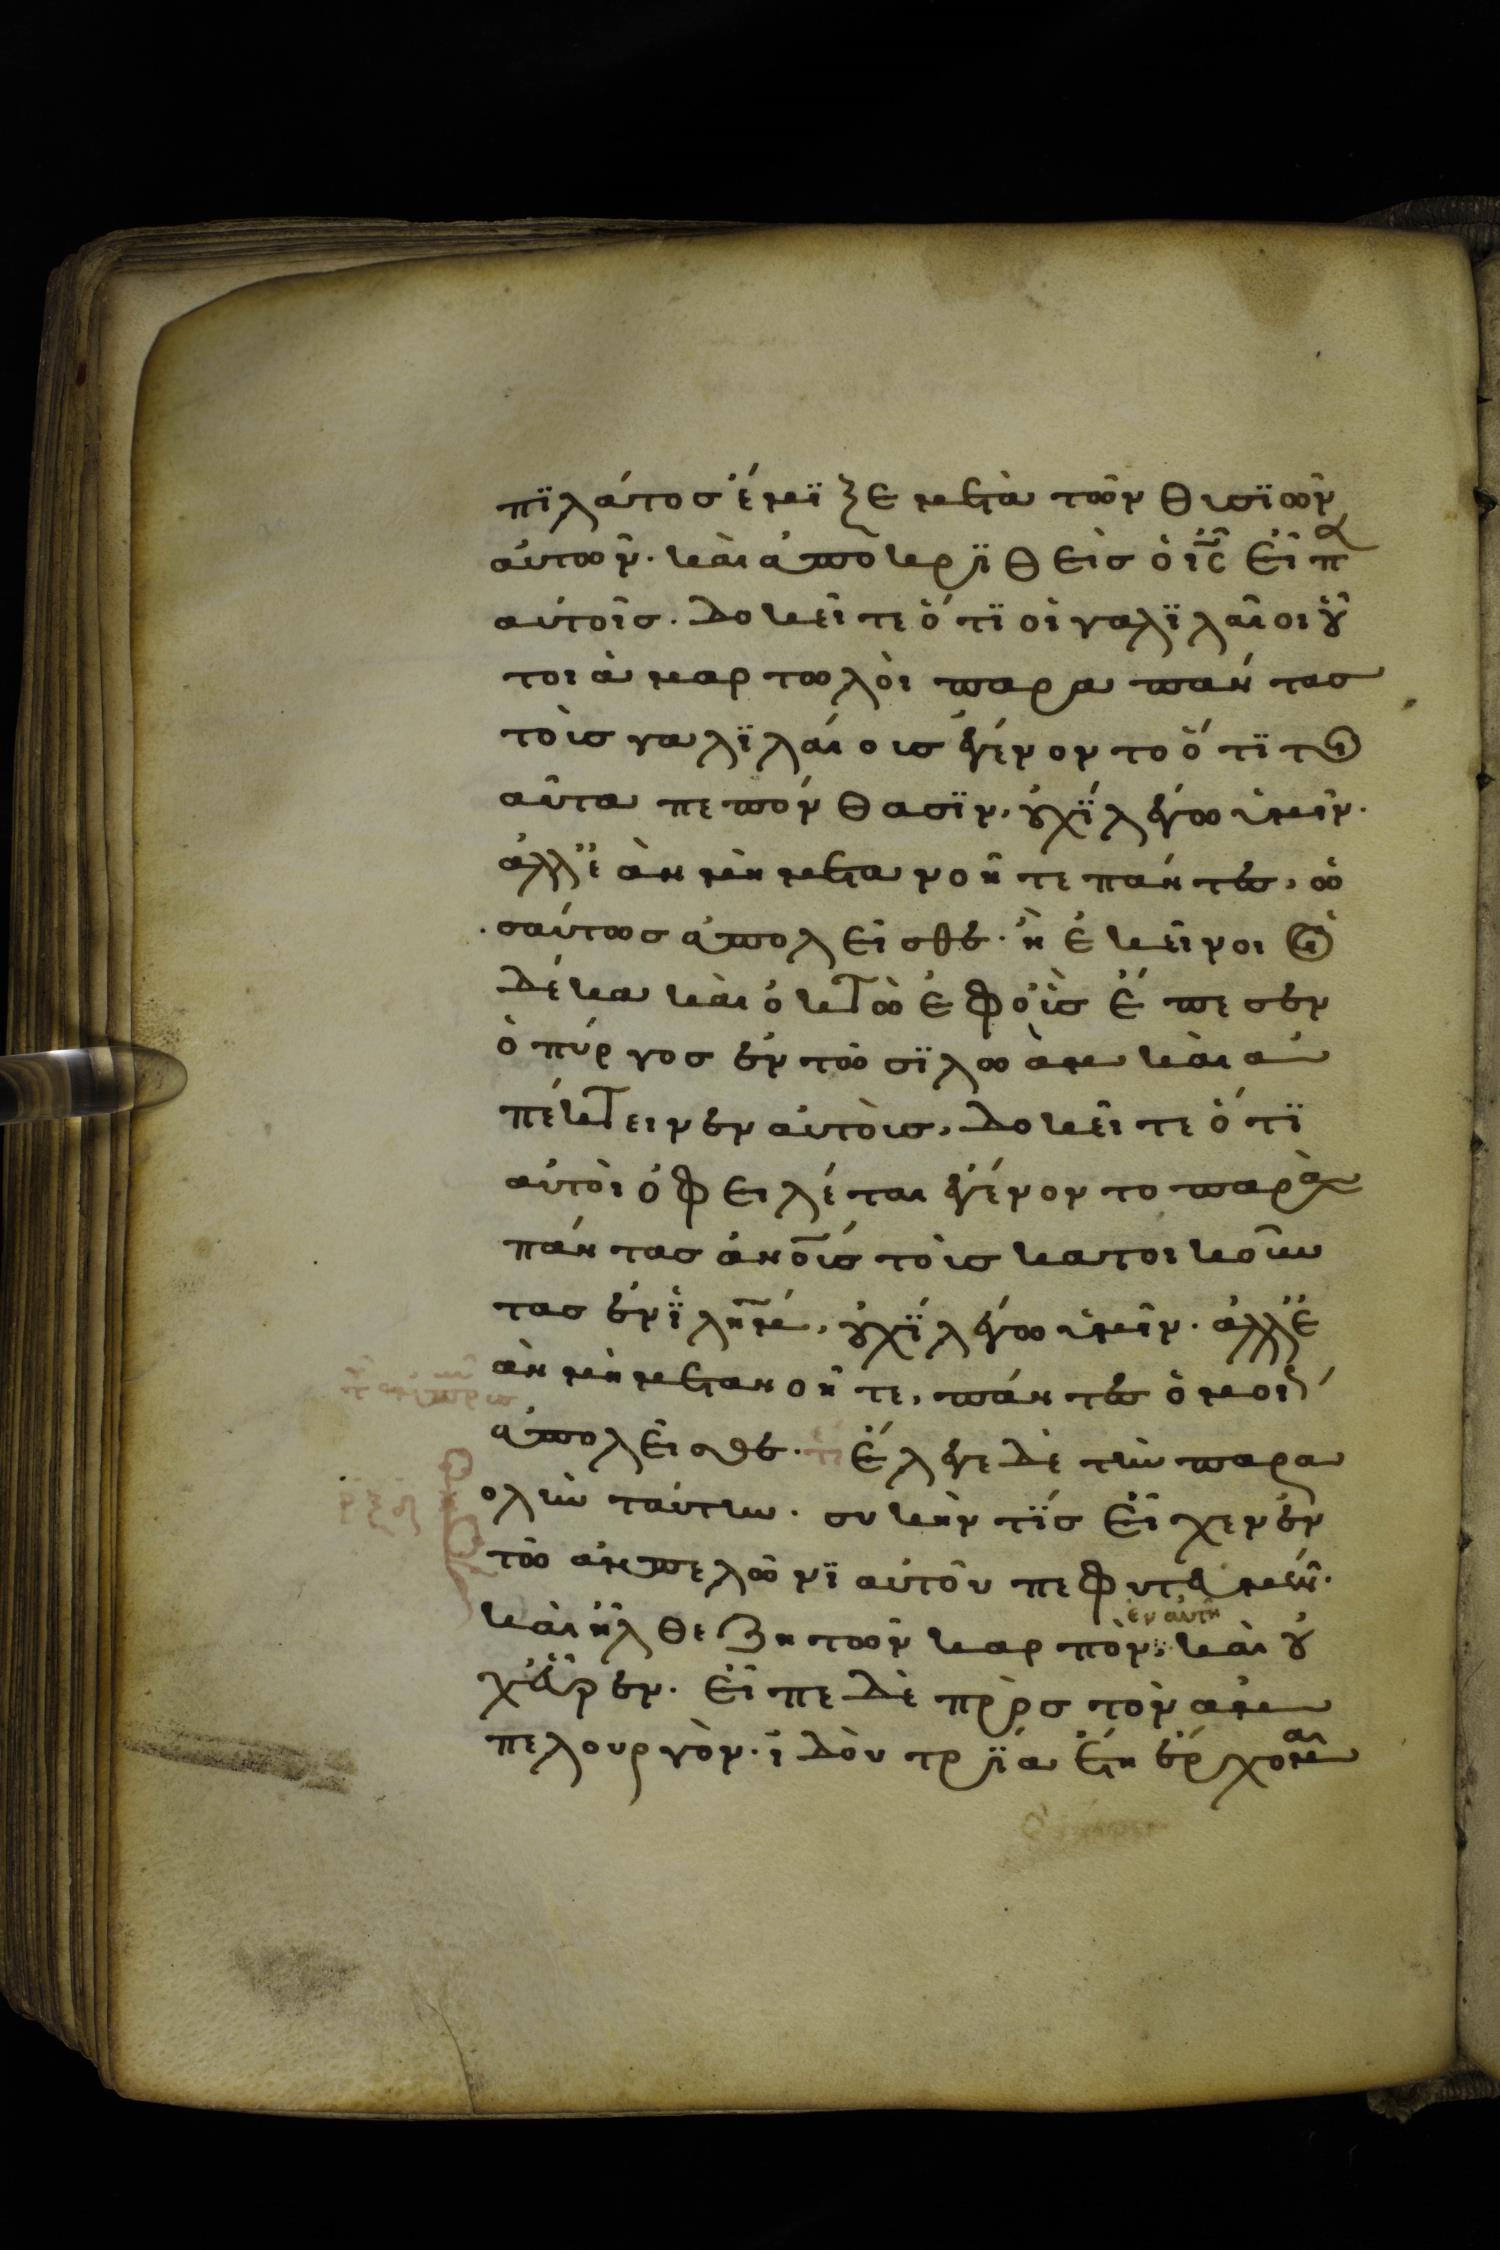 πϊλάτος ἔμϊξε μετὰ τῶν θυσϊῶν
αὐτῶν· καὶ ἀποκρϊθεὶς ὁ ϊ̅ς̅ εἶπ
αὐτοῖς· δοκεῖτε ὅτϊ οἱ γαλϊλαῖοι οὗ
τοι ἁμαρτωλοὶ παρα πάντας
τοὺς γαλϊλαίους ἐγένοντο ὅτϊ τοι
αῦτα πεπόνθασϊν, οὐχϊ λέγω ὑμῖν·
ἀλλ' ἐὰν μὴ μετανοῆτε πάντες, ὡ
σαύτως ἀπολεῖσθε· ἢ ἐκεῖνοι οἱ
δέκα καὶ ὀκτὼ ἐφ οὓς ἔπεσεν
ὁ πύργος ἐν τῷ σϊλωὰμ καὶ ἀ
πέκτεινεν αὐτοὺς, δοκεῖτε ὅτϊ
αὐτοὶ ὀφειλέται ἐγένοντο παρὰ
πάντας ἀν̅ο̅υ̅ς τοὺς κατοικοῦν
τας ἐν ϊ̅λ̅η̅μ̅, οὐχϊ λέγω ὑμῖν· ἀλλ' ἐ
ὰν μὴ μετανοῆτε, πάντες ὁμοί
ἀπολεῖσθε· ἔλεγε δὲ τὴν παρα
ολὴν ταύτην· συκὴν τϊς εἶχεν ἐν
τῷ ἀμπελῶνϊ αὐτοῦ πεφυτευμένην·
ἐν αὐτῆ
καὶ ἦλθε ζητῶν καρπὸν, καὶ οὐ
χ εὗρεν· εἶπε δὲ πρὸς τὸν ἀμ
πελουργὸν· ϊδοὺ τρϊα ἔτη ἔρχομαι